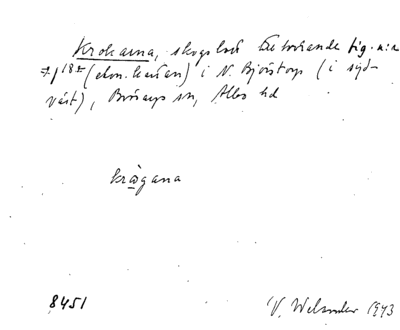 Krokarna, skogslott tillhörande fig. n:a
7, 18 (ekon. kartan) i N. Björstorp (i syd-
väst), Brösarps sn, Albo hd
krågana
8451
V. Welander 1943